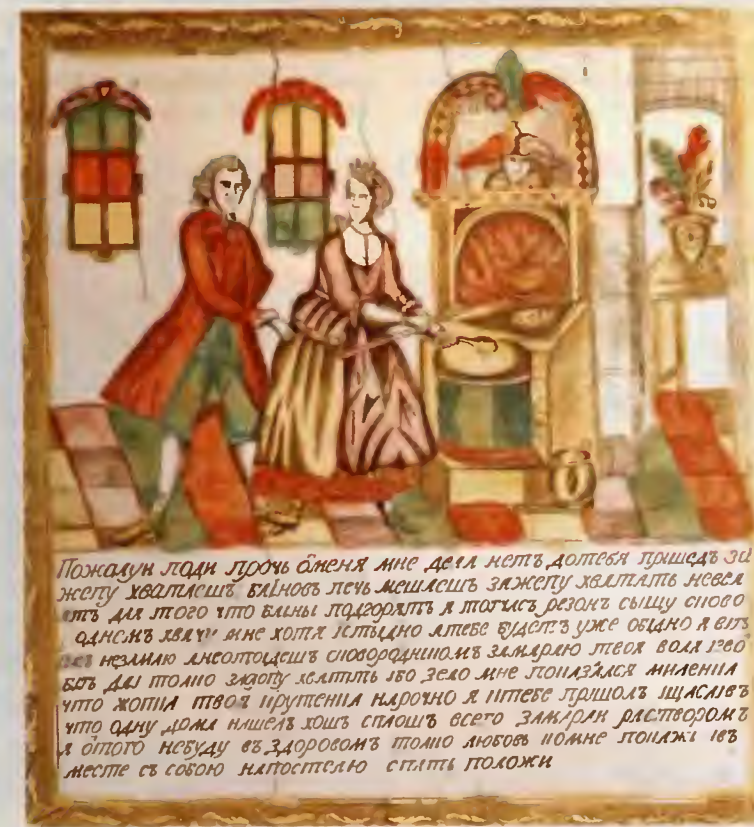 Пожалуи поди прочь ѿменя мне дела нетъ дотебя пришедъ за
жепу хватаешъ блiновъ печь мешаешъ зажепу хватать невел
атъ для того что блины подгорятъ я тотчасъ резонъ сыщу сково
однемъ хвачу мне хотя iстыдно атебе будетъ уже обидно я вить
незамаю анеотоидешъ сковородникомъ замараю твоя воля iзво
бить дай толко зажопу хватить iбо зело мне показался миленка
что жопка твоя крутенка нарочно я ктебе пришолъ щасливъ
что одну дома нашелъ хошъ сплошъ всего замараи растворомъ
я ѿтого небуду въ здоровомъ толко любовь комне покажи iвъ
месте съ собою напостелю спать положи